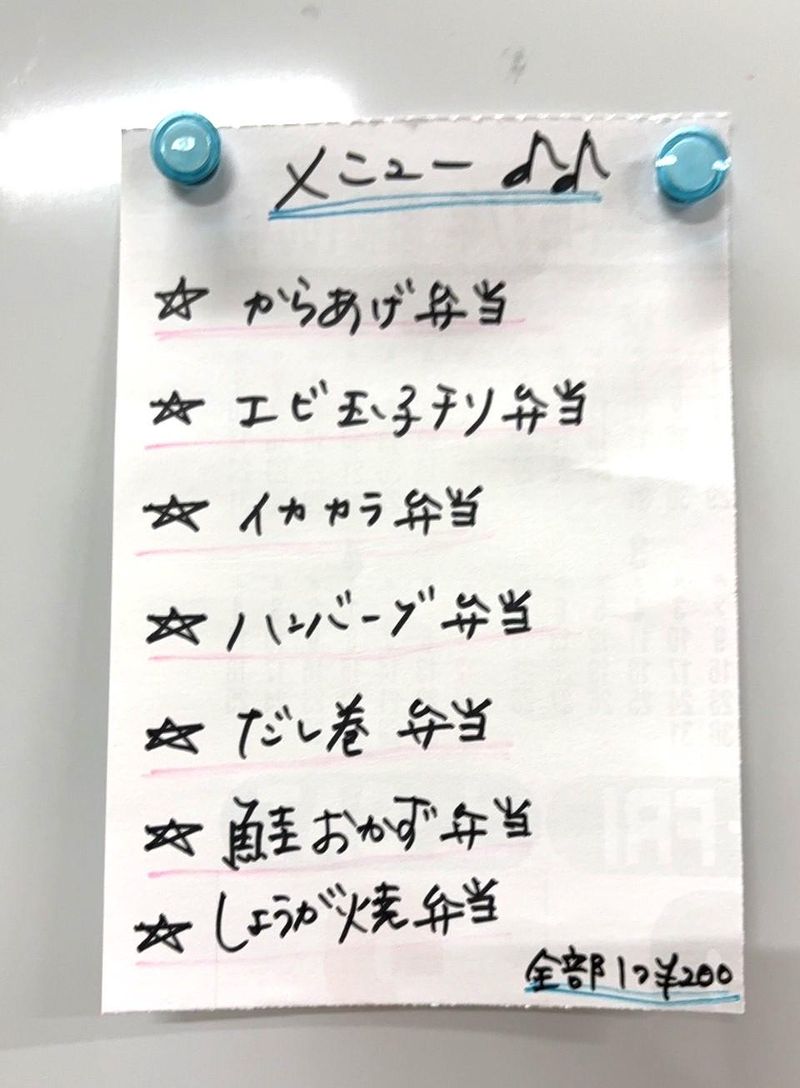 メニュー ♪♪
☆ からあげ弁当
☆ エビ玉子チリ弁当
☆ イカカラ弁当
☆ ハンバーグ弁当
☆ だし巻 弁当
☆ 鮭おかず弁当
☆ しょうが焼弁当
全部1つ¥200